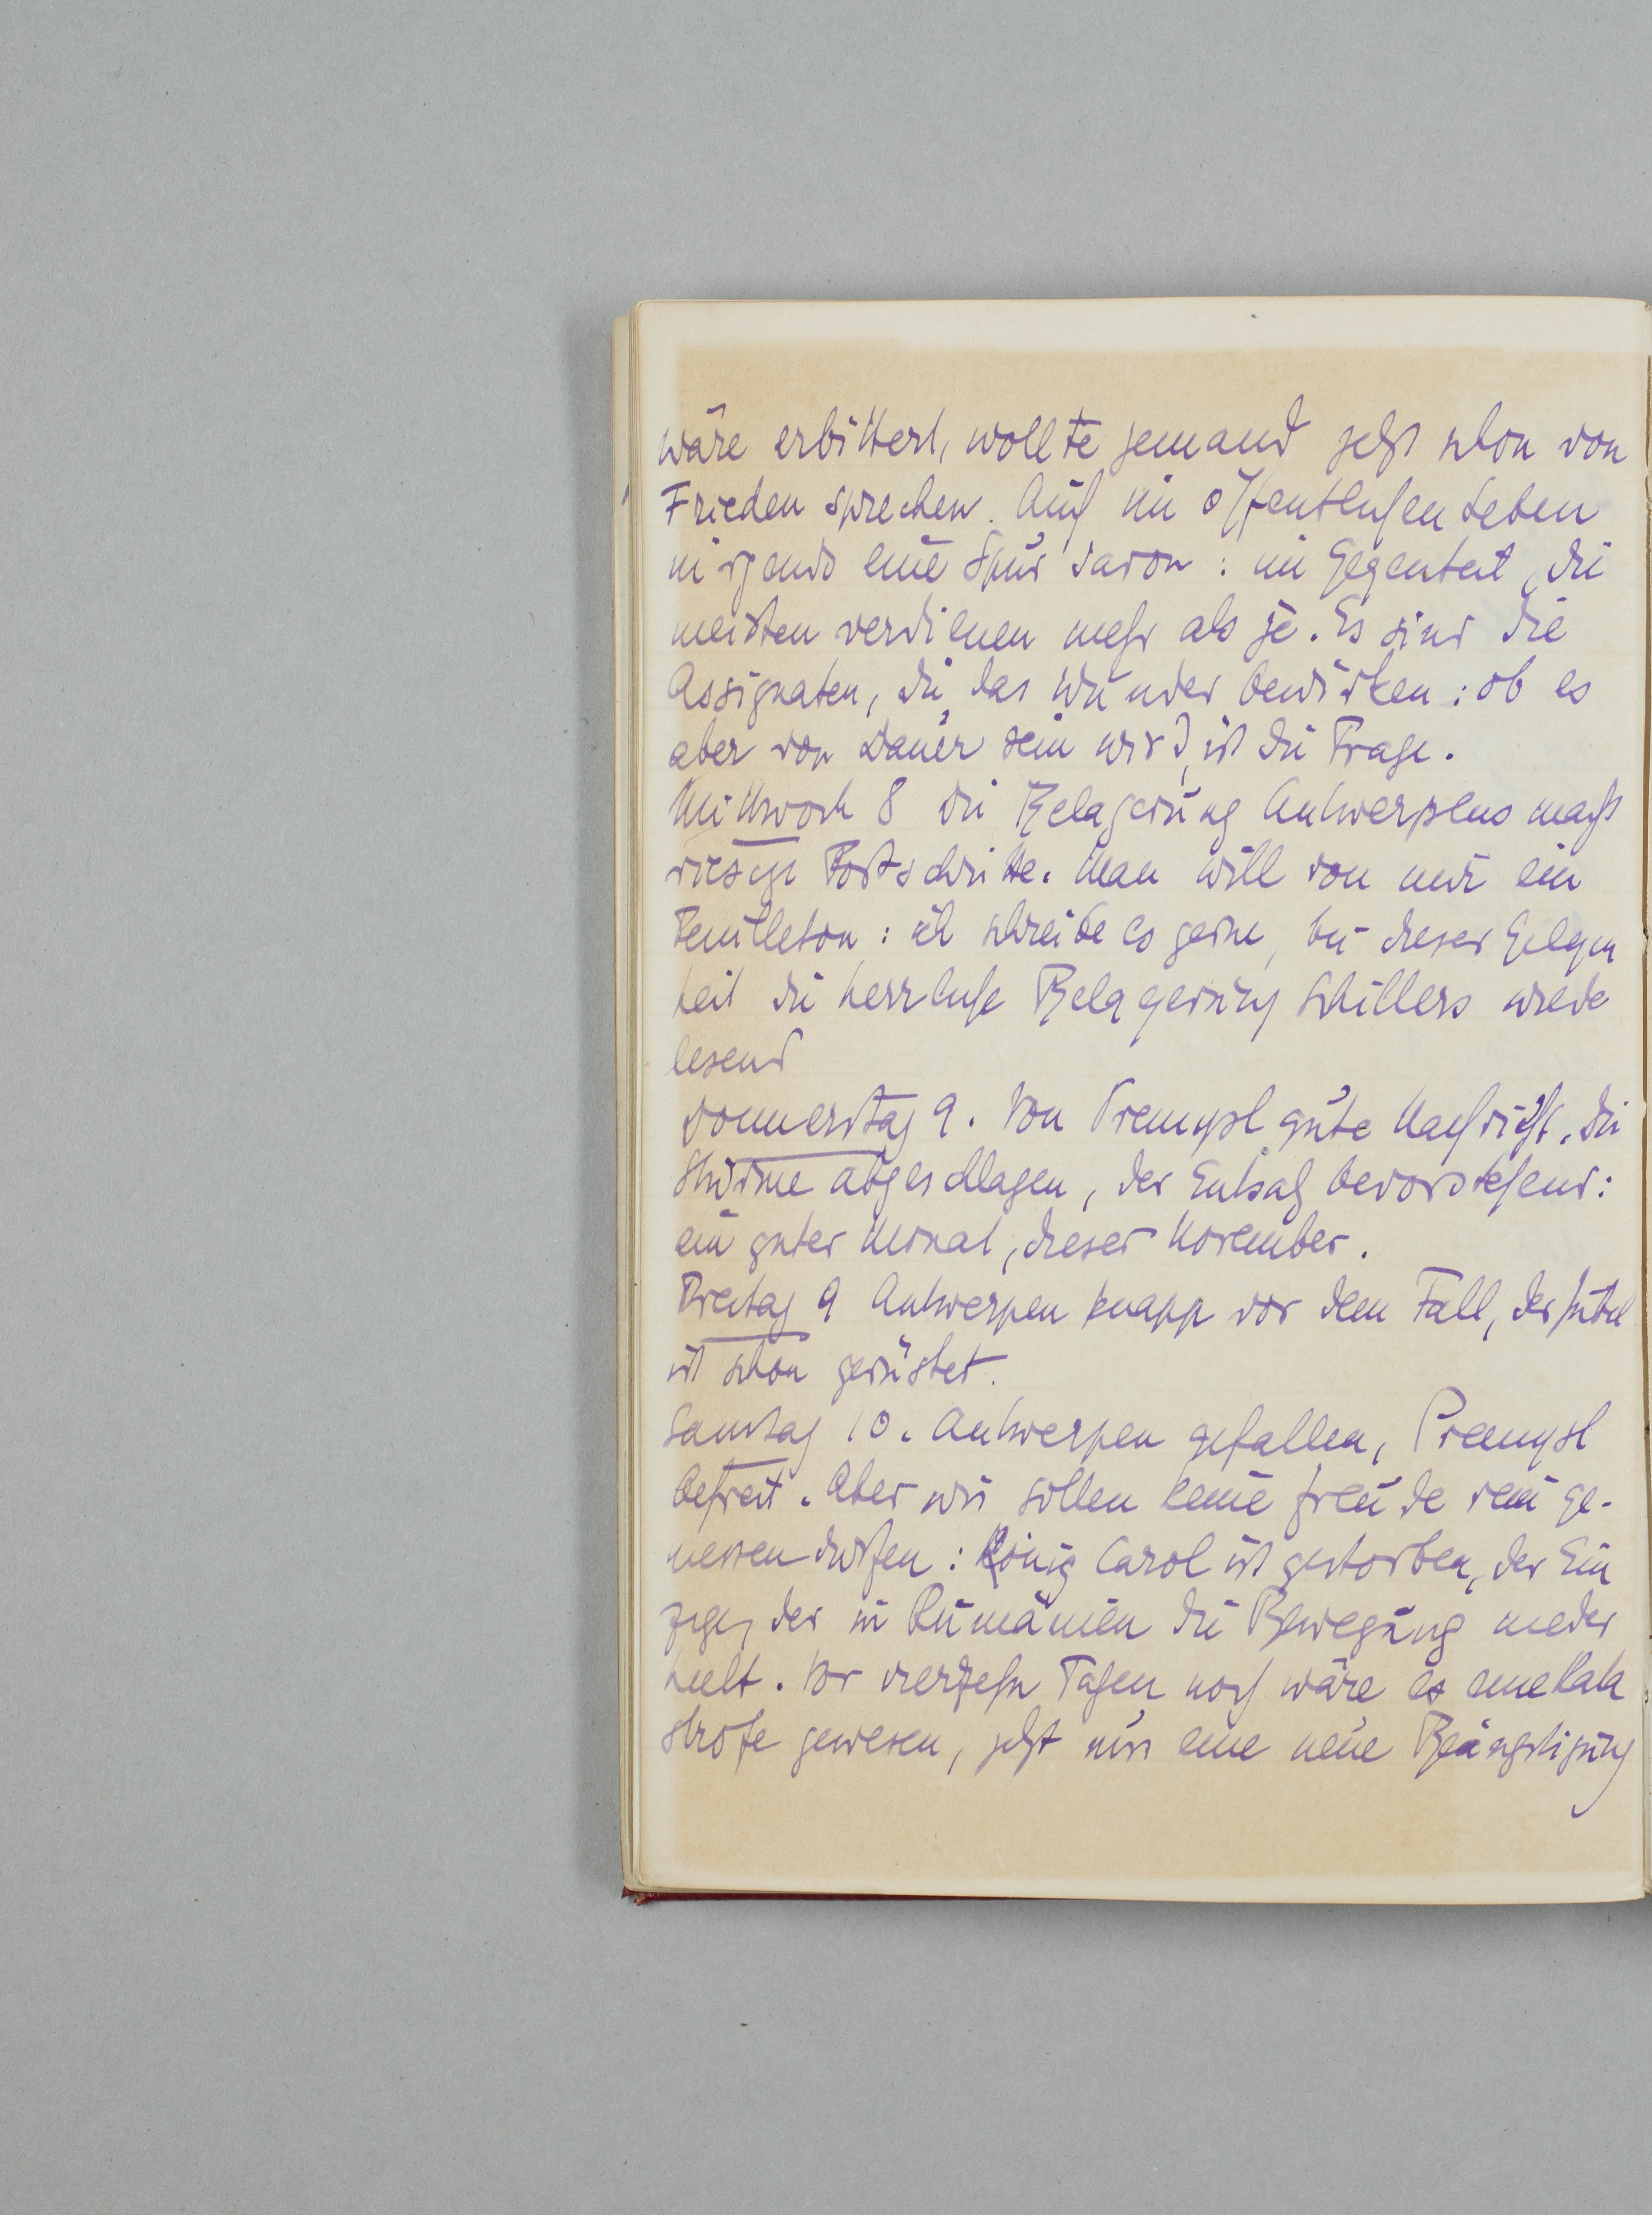 wäre erbittert, wollte jemand jetzt schon von
Frieden sprechen. Auch im öffentlichen Leben
nirgends eine Spur davon: im Gegenteil, die
meisten verdienen mehr als je. Es sind die
Assignaten, die das Wunder bewirken: ob es
aber von Dauer sein wird, ist die Frage.
Mittwoch 8 Die Belagerung Antwerpens macht
riesige Fortschritte. Man will von mir ein
Feuilleton: ich schreibe es gerne, bei dieser Gelegen
heit die herrliche Belagerung Schillers wieder
lesend
Donnerstag 9. Von Premysl gute Nachricht, die
Stürme abgeschlagen, der Entsatz bevorstehend:
ein guter Monat, dieser November.
Freitag 9 Antwerpen knapp vor dem Fall, der Jubel
ist schon gerüstet.
Samstag 10. Antwerpen gefallen, Premysl
befreit. Aber wir sollen keine Freude rein ge-
niessen dürfen: König Carol ist gestorben, der Ein
zige, der in Rumänien die Bewegung nieder
hielt. Vor vierzehn Tagen noch wäre es eine Kata
strofe gewesen, jetzt nur eine neue Beängstigung